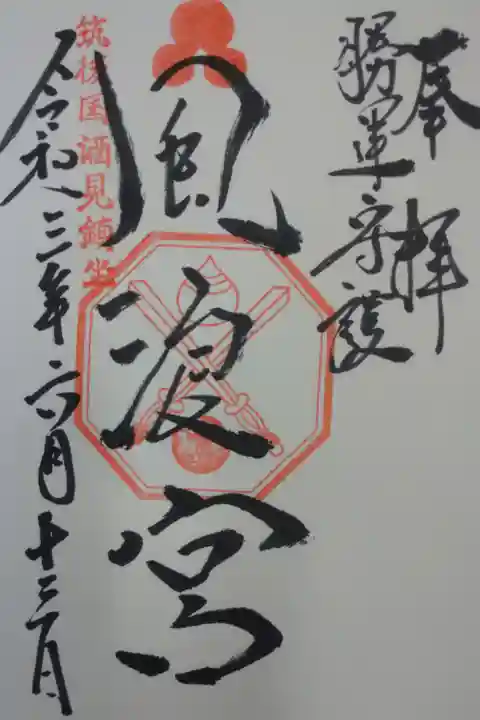 奉拝
勝軍守護
風浪宮
筑後国酒見鎮坐
令和三年六月十三日